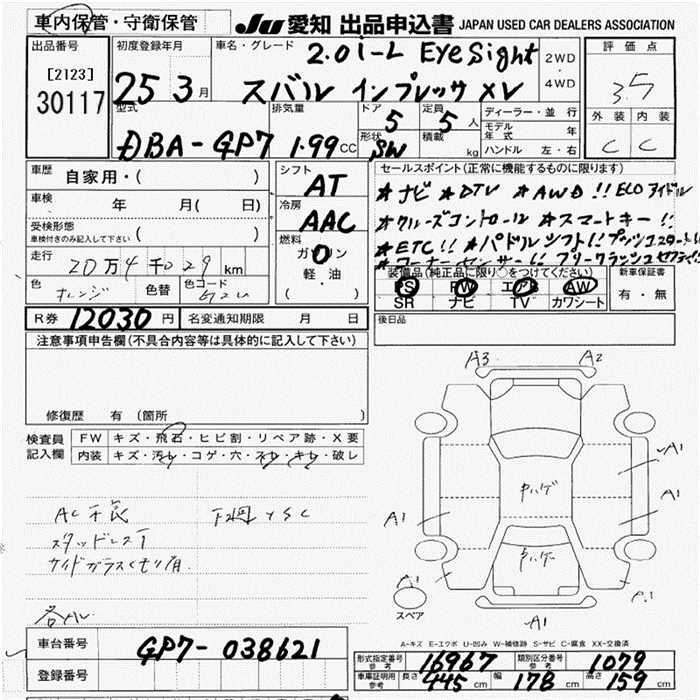 車内保管・守衛保管
JU 愛知 出品申込書 JAPAN USED CAR DEALERS ASSOCIATION
出品番号 [2123] 30117
初度登録年月 25 3月
車名・グレード 2.0i-L EyeSight
スバル インプレッサ XV
2WD ・ 4WD
評価点 3.5
外装 内装
C C
型式 DBA-GP7
排気量 1.99 CC
ドア 5
定員 5人
形状 SW
積載 kg
ディーラー・並行
モデル年式 年
ハンドル 左・右
車歴 自家用・( )
車検 年 月( 日)
受検形態 車検付きのみ記入して下さい ( )
走行 20万4千029 km
色 オレンジ 色替 色コード G2U
シフト AT
冷房 AAC
燃料 ガソリン 軽・油 ( )
セールスポイント(正常に機能するものに限ります)
★ナビ ★DTV ★AWD!! ECOアイドル
★クルーズコントロール ★スマートキー!!
★ETC!! ★パドルシフト!! プッシュスタート!!
★コーナーセンサー!!
装備品(純正品に限り○をつけてください)
PS PW エアB AW
SR ナビ TV カワシート
新車保証書 有・無
R券 12030 円 名変通知期限 月 日
後日品
注意事項申告欄(不具合内容等は具体的に記入して下さい)
修復歴 有 (箇所 )
検査員記入欄
FW キズ・飛石・ヒビ割・リペア跡・X要
内装 キズ・汚れ・コゲ・穴・スレ・キレ・破レ
AC不良 下廻サビC
スタッドレス
サイドガラスくもり有
A3 A2
A1
A1
A1
ハゲ
ハゲ
A1
A1
スペア
A-キズ E-エクボ U-凹み W-補修跡 S-サビ C-腐食 XX-交換済
車台番号 GP7-038621
登録番号
形式指定番号 参考 16967 類別区分番号 参考 1079
車庫証明用 参考 長さ 445 cm 幅 178 cm 高さ 159 cm